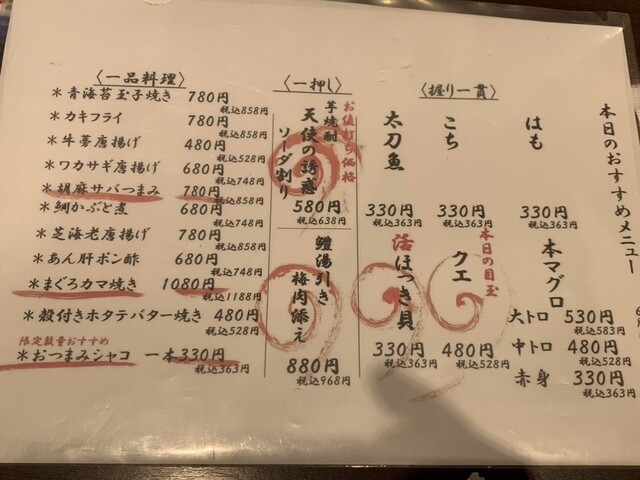 本日のおすすめメニュー
〈握り一貫〉
はも
330円
税込363円
こち
330円
税込363円
太刀魚
330円
税込363円
本マグロ
大トロ 530円
税込583円
中トロ 480円
税込528円
赤身 330円
税込363円
本日の目玉
クエ
480円
税込528円
活ほっき貝
330円
税込363円
〈一押し〉
お値打ち価格
芋焼酎
天使の誘惑
ソーダ割り
580円
税込638円
鱧湯引き
梅肉添え
880円
税込968円
〈一品料理〉
＊青海苔玉子焼き 780円
税込858円
＊カキフライ 780円
税込858円
＊牛蒡唐揚げ 480円
税込528円
＊ワカサギ唐揚げ 680円
税込748円
＊胡麻サバつまみ 780円
税込858円
＊鯛かぶと煮 680円
税込748円
＊芝海老唐揚げ 780円
税込858円
＊あん肝ポン酢 680円
税込748円
＊まぐろカマ焼き 1080円
税込1188円
＊殻付きホタテバター焼き 480円
税込528円
限定数量おすすめ
＊おつまみシャコ 一本330円
税込363円